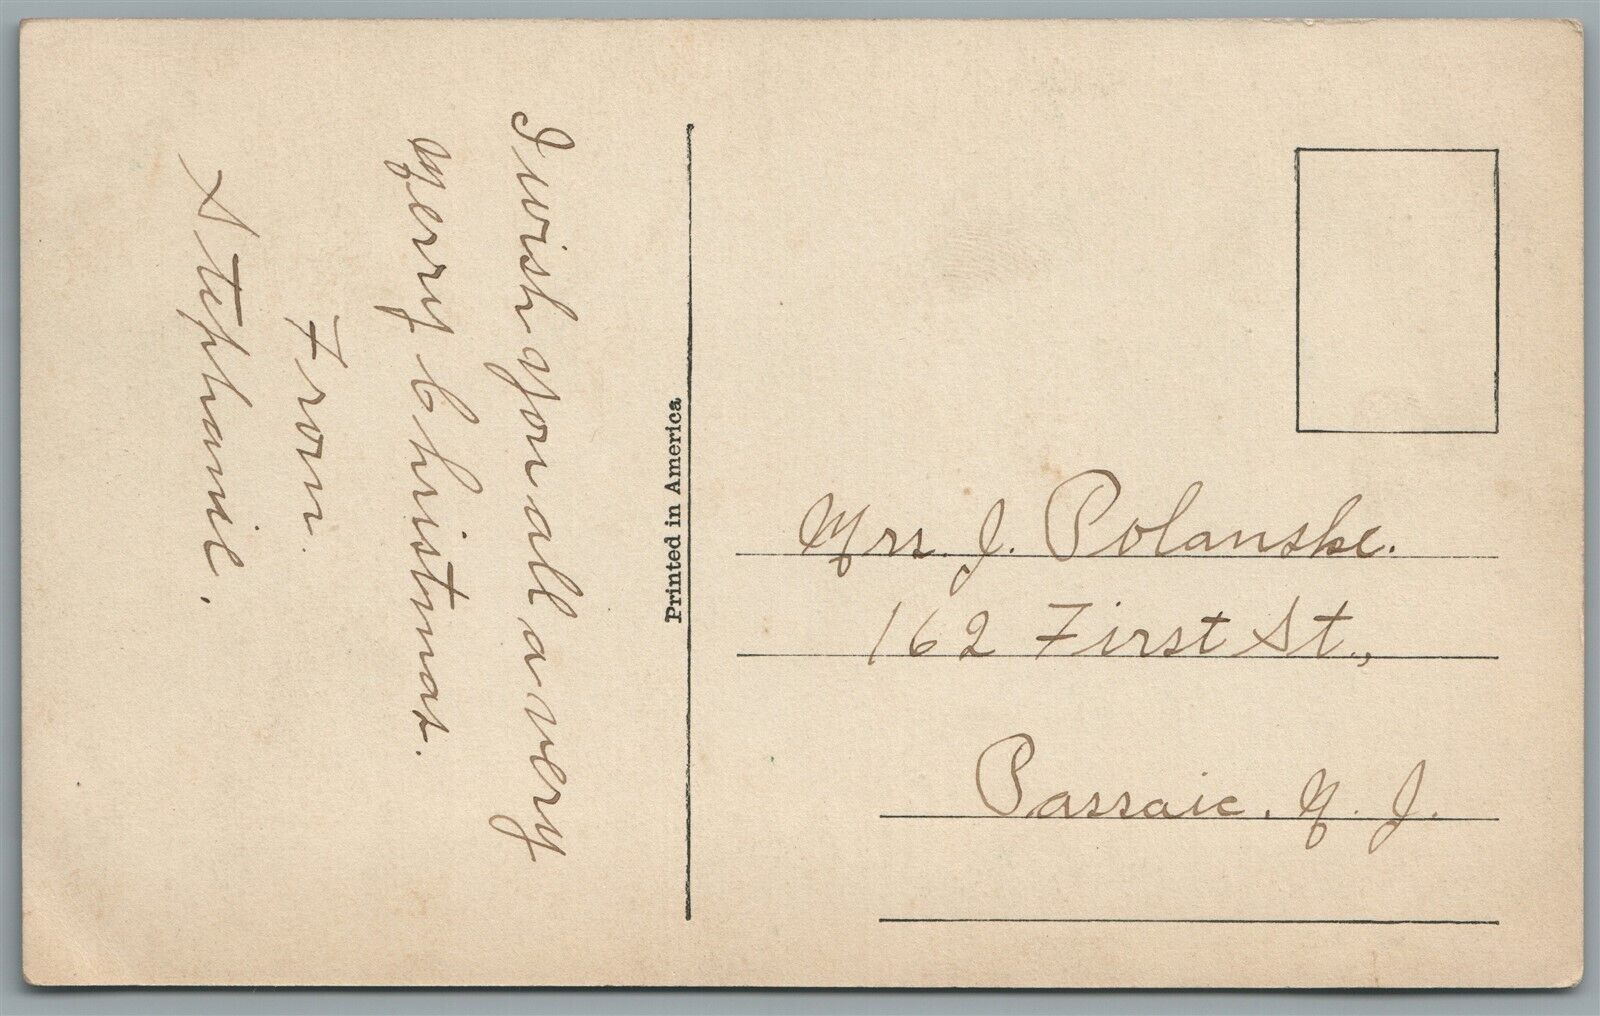 I wish you all a very
Merry Christmas.
From
Stephanie.
Printed in America
Mrs. J. Polanske.
162 First St.,
Passaic. N. J.